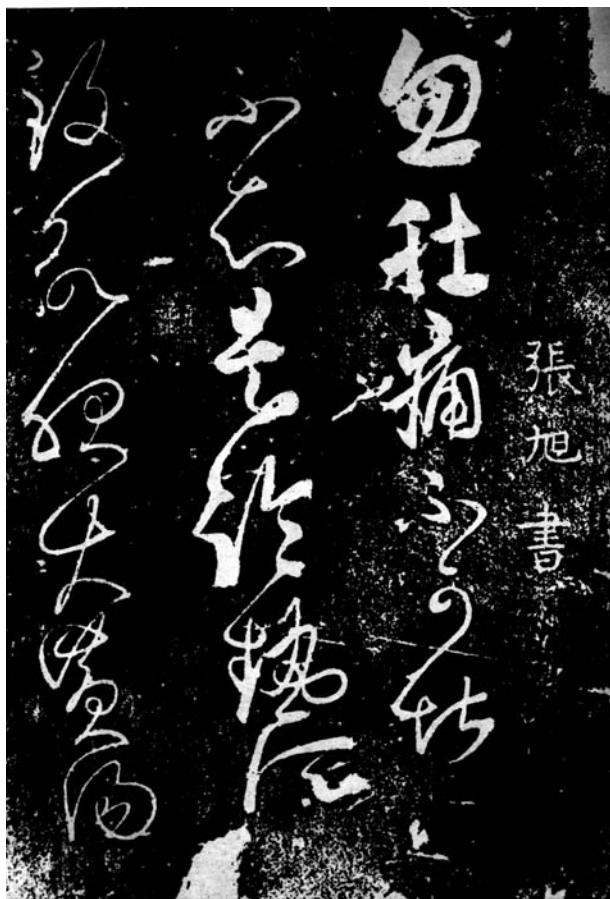 張旭書
忽肚痛不可堪
不知是冷熱所
致欲服大黃湯